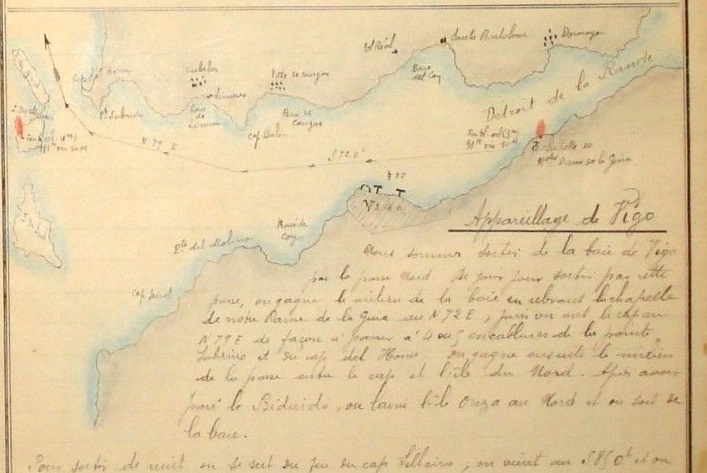 Cubelas
Ville de Cangas
Vl Réal
Sainte Bartolome
Domayo
Limens
Baie de Limens
Baie de Cangas
Cap Balea
Baie del Con
Détroit de la Rande
N 79 E
S 720
Chapelle de
Notre Dame de la Guia
Vigo
Appareillage de Vigo
Baie de Coya
Pte del Molino
Cap
Nous sommes sortis de la baie de Vigo
par la passe Nord. De jour pour sortir par cette
passe, on gagne le milieu de la baie en relevant la chapelle
de notre Dame de la Guia au N 72 E, puis on met le cap au
N 79 E de façon à passer à 4 ou 5 encablures de la pointe
Subrido et du cap del Home. On gagne ensuite le milieu
de la passe entre le cap et l'île du Nord. Après avoir
paré le Bidindo, on laisse l'île Onza au Nord et on sort de
la baie.
Pour sortir de nuit on se sert du feu du cap ; on vient au S 85 0 et on